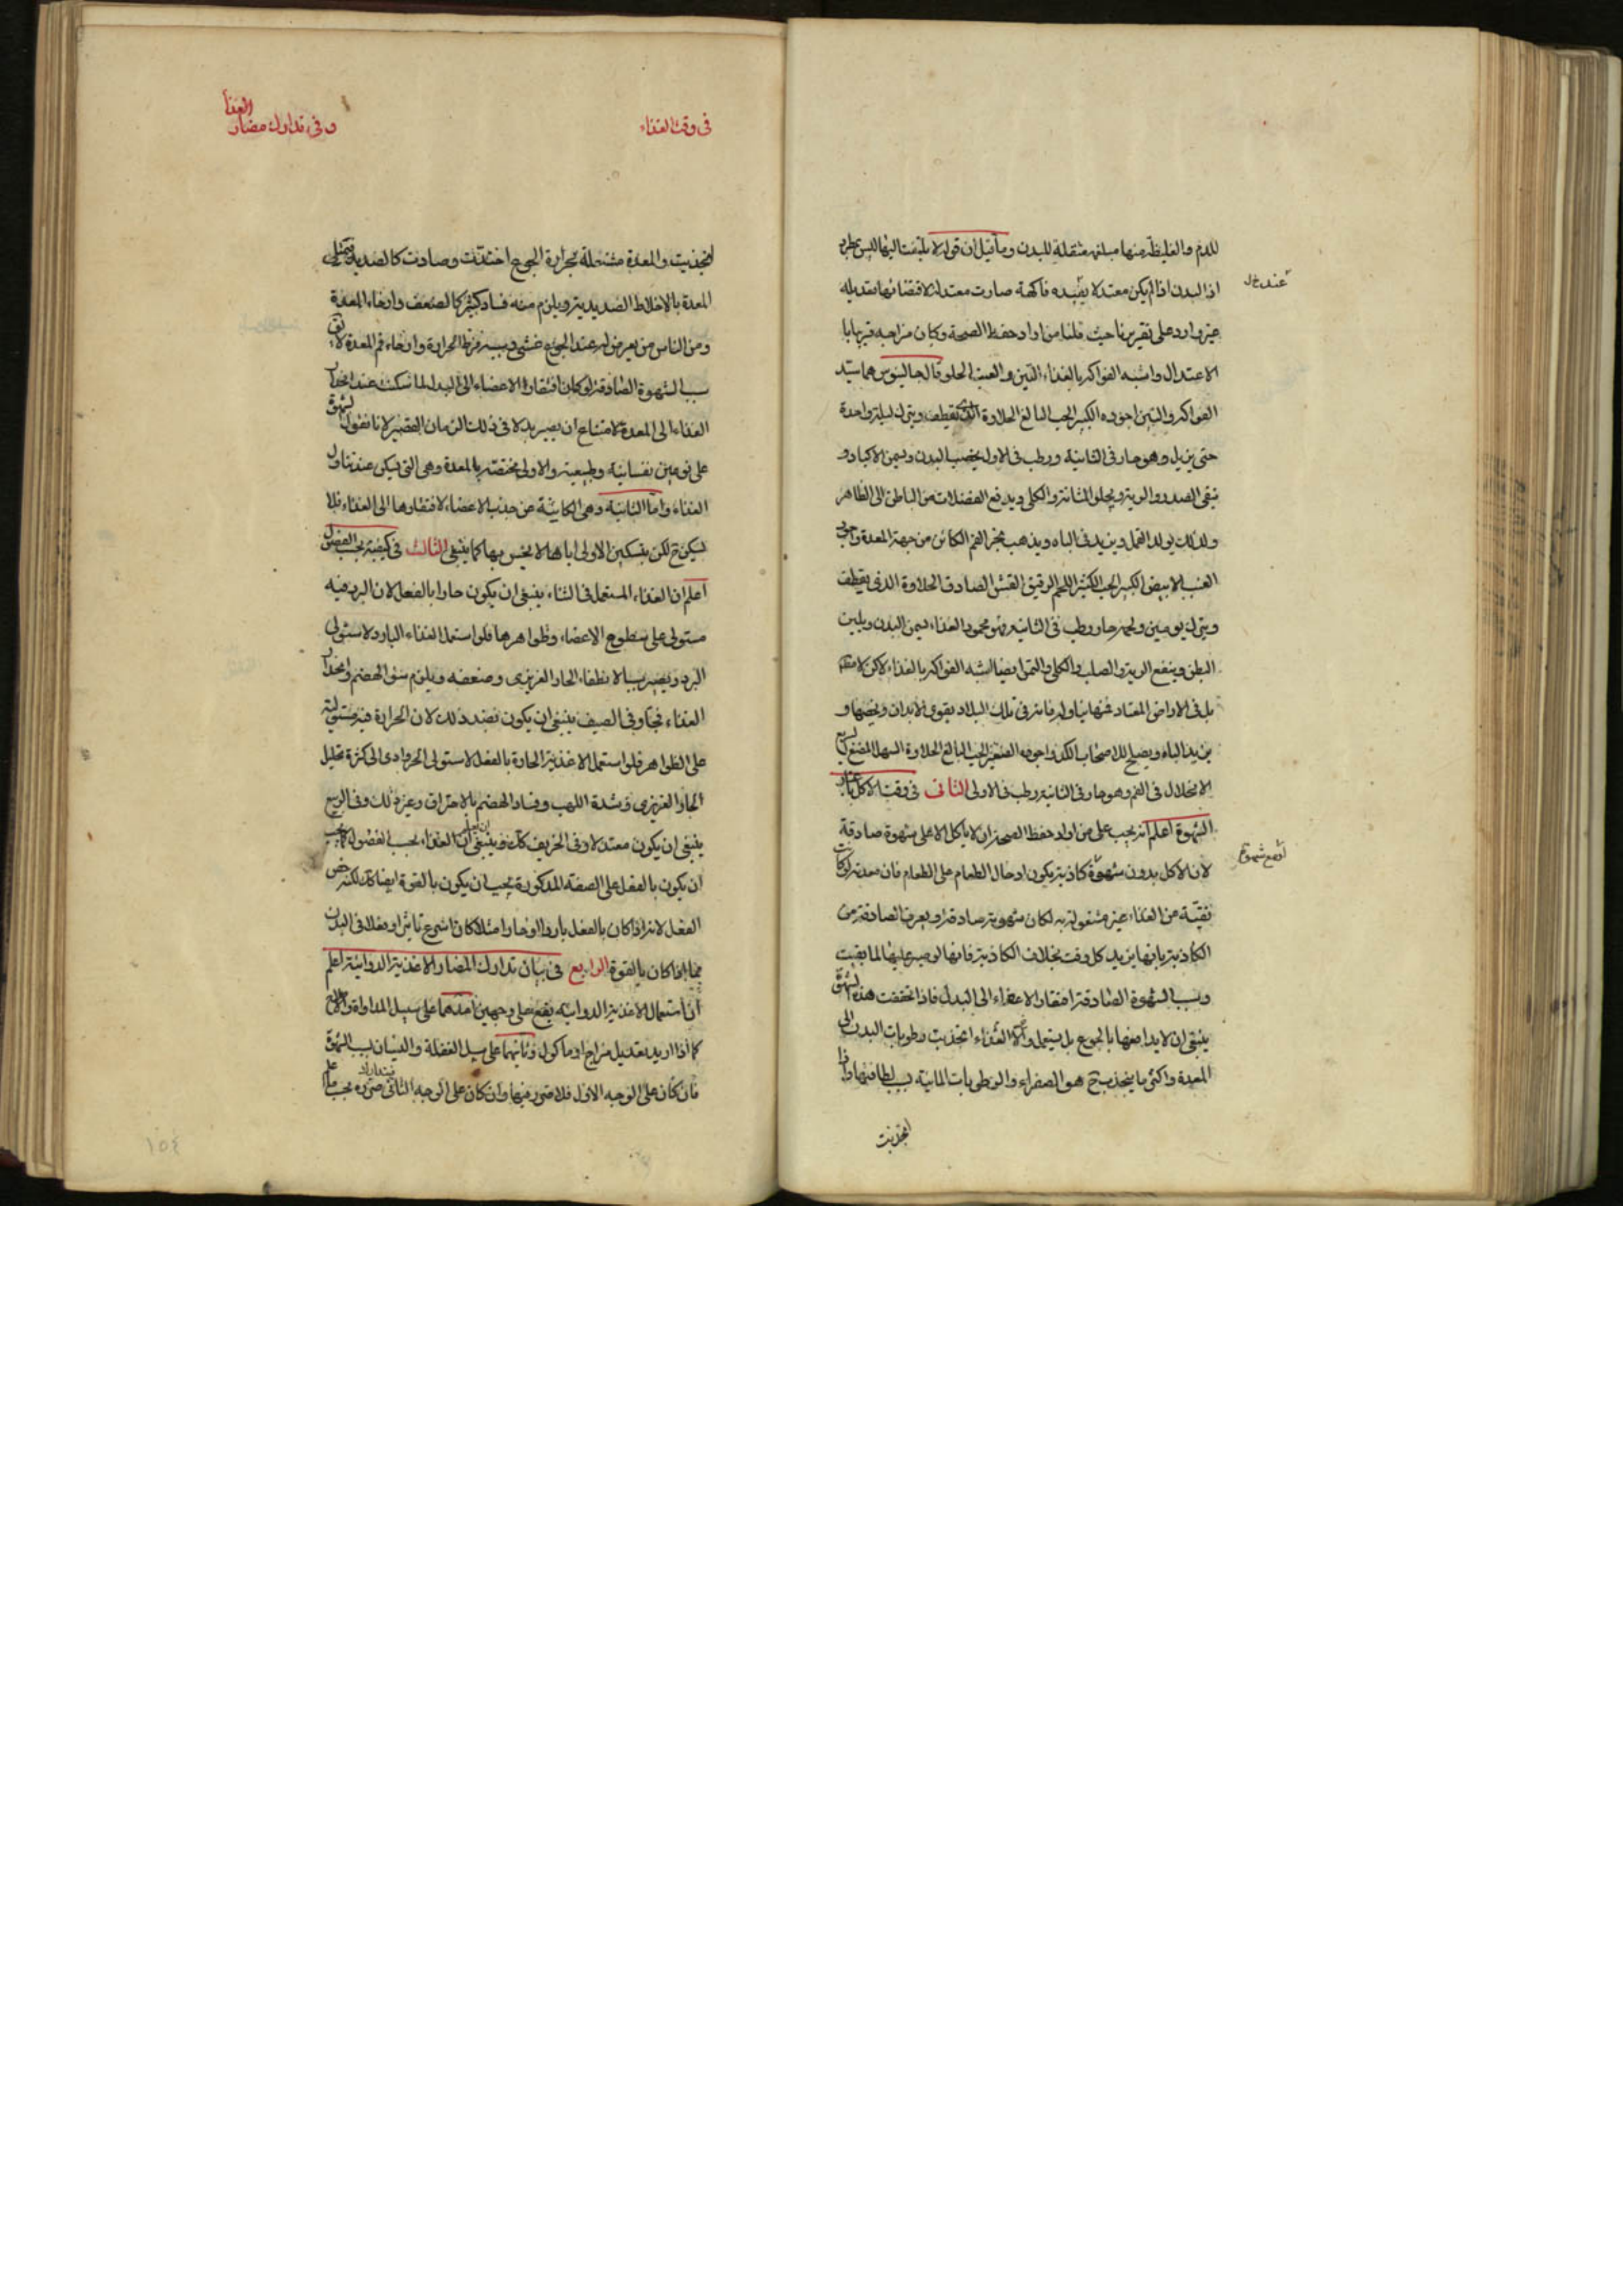 للدم والغليظة منها مبلغمة مثقلة للبدن وما قيل ان قوله لا يلتفت اليها ليس بطريق
اذ البدن اذا لم يكن معتدلا يفيده فاكهة صارت معتدلة لاقتضائها تعديله
غير وارد على تقريرنا حيث قلنا من اراد حفظ الصحة وكان مزاجه قريبا
الاعتدال واشبه الفواكه بالغذاء التين والعنب الحلو قال جالينوس هما سيد
الفواكه والتين اجوده الكبير الحب البالغ الحلاوة الذي يقطف ويترك ليلة واحدة
حتى يذبل وهو حار فى الثانية ورطب فى الاولى يخصب البدن ويسمن الاكباد و
ينقى الصدر والرية ويجلو المثانة والكلى ويدفع الفضلات من الباطن الى الظاهر
ولذلك يولد القمل ويزيد فى الباه ويذهب بخر الفم الكائن من جهة المعدة واجود
العنب الابيض الكبير الحب الكثير اللحم الرقيق القشر الصادق الحلاوة الذى يقطف
ويترك يومين ولحمه حار رطب فى الثانية وهو محمود الغذاء يسمن البدن ويلين
البطن وينفع الرية والصلب والكلى والتمر ايضا اشبه الفواكه بالغذاء لاكن لا مطلقا
بل فى الاراضى المعتاد فيها تناوله فانه فى تلك البلاد يقوى الابدان ويخصبها و
يزيد الباه ويصلح للاصحاب الكد واجوده الصغير الحب البالغ الحلاوة السهل المضغ السريع
الانحلال فى الفم وهو حار فى الثانية رطب فى الاولى الثانى فى وقت الاكل باعتبار
الشهوة اعلم انه يجب على من اراد حفظ الصحة ان لا ياكل الا على شهوة صادقة
لان الاكل بدون شهوة كاذبة يكون ادخال الطعام على الطعام فان معدته لو كانت
نقية من الغذاء غير مشغولة به لكان شهوته صادقة ويعرف الصادقة من
الكاذبة بانها يزيد كل وقت بخلاف الكاذبة فانها لو صبر عليها لما بقيت
وسبب الشهوة الصادقة افتقار الاعضاء الى البدل فاذا تحققت هذه الشهوة
ينبغى ان لا يدافعها بالجوع بل يستعمل والا الغذاء انجذبت رطوبات البدن الى
المعدة واكثر ما ينجذب ح هو الصفراء والرطوبات المائية بسبب لطافتها واذا
انجذبت
عند خ ل
فى وقت الغذاء
وفى تدارك مضار الغذا
انجذبت والمعدة مشتعلة بحرارة الجوع احتدت وصارت كالصديد فيمتلى
المعدة بالاخلاط الصديدية ويلزم منه فساد كثير كالضعف وارخاء المعدة
ومن الناس من يعرض له عند الجوع غشى بسبب فرط الحرارة وارخاء فم المعدة لا يق
سبب الشهوة الصادقة لو كان افتقار الاعضاء الى البدل لما سكنت عند انحدار
الغذاء الى المعدة لامتناع ان يصير بدلا فى ذلك الزمان القصير لانا نقول الشهوة
على نوعين نفسانية وطبيعية والاولى مختصة بالمعدة وهى التى يسكن عند تناول
الغذاء واما الثانية وهى الكائنة عن جذب الاعضاء لافتقارها الى الغذاء فلا
يسكن ح لكن بتسكين الاولى اياها لا يحس بها كما ينبغى الثالث فى كيفيته بحسب الفصول
اعلم ان الغذاء المستعمل فى الشتاء ينبغى ان يكون حارا بالفعل لان البرد فيه
مستولى على سطوح الاعضاء وظواهرها فلو استعمل الغذاء البارد لاستولى
البرد ويصير سببا لانطفاء الحار الغريزى وضعفه ويلزم سوء الهضم وانحدار
الغذاء فجا وفى الصيف ينبغى ان يكون بضد ذلك لان الحرارة فيه مستولية
على الظواهر فلو استعمل الاغذية الحارة بالفعل لاستولى الحر وادى الى كثرة تحليل
الحار الغريزى وشدة اللهب وفساد الهضم بالاحتراق وغير ذلك وفى الربيع
ينبغى ان يكون معتدلا وفى الخريف كك وينبغى ان يعلم ان الغذاء بحسب الفصول كما يجب
ان يكون بالفعل على الصفة المذكورة يجب ان يكون بالقوة ايضا كك لكنه خص
الفعل لانه اذا كان بالفعل باردا او حارا مثلا كان اسرع تاثيرا وفعلا فى البدن
مما اذا كان بالقوة الرابع فى بيان تدارك المضار الاغذية الدوائية اعلم
ان استعمال الاغذية الدوائية يقع على وجهين احدهما على سبيل المداواة والعلاج
كما اذا اريد تعديل مزاج او ماكول وثانيهما على سبيل الغفلة والنسيان بسبب الشهوة
فان كان على الوجه الاول فلا ضرر فيها وان كان على الوجه الثانى فتدارك ضرره بحسب ما
١٥٤